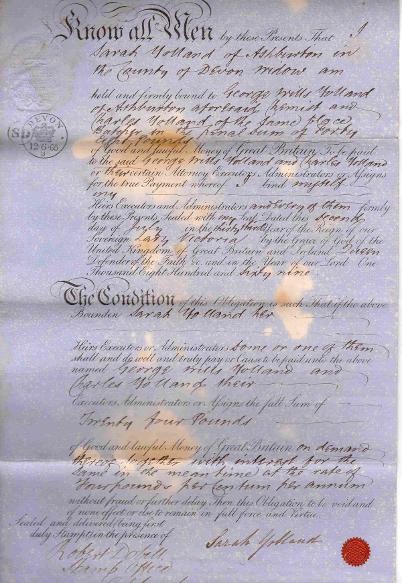 Know all Men by these Presents That I
Sarah Yolland of Ashburton in
the County of Devon Widow am
held and firmly bound to George Wills Yolland
of Ashburton aforesaid Chemist and
Charles Yolland of the same place
in the penal sum of Forty
eight pounds
of good and lawful Money of Great Britain To be paid
to the said George Wills Yolland and Charles Yolland
or their certain Attorney Executors Administrators or Assigns
for the true Payment whereof I bind myself
my
Heirs Executors and Administrators and every of them firmly
by these Presents, Sealed with my Seal Dated this Second
day of July in the thirty third Year of the Reign of our
Sovereign Lady Victoria by the Grace of God of the
United Kingdom of Great Britain and Ireland Queen
Defender of the Faith &c. and in the Year of our Lord One
Thousand Eight Hundred and Sixty nine
DEVON
12·6·65
The Condition of this Obligation is such That if the above
Bounden Sarah Yolland her
Heirs Executors or Administrators Some or one of them
shall and do well and truly pay or Cause to be paid unto the above
named George Wills Yolland and
Charles Yolland their
Executors Administrators or Assigns the full Sum of
Twenty four Pounds
of Good and lawful Money of Great Britain on demand
together with interest for the
same in the mean time at the rate of
Four pounds per Centum per annum
without fraud or further delay Then this Obligation to be void and
of none effect or else to remain in full force and Virtue.
Sealed and delivered being first
duly Stampt in the presence of
Sarah Yolland
Robert
Stamp Office